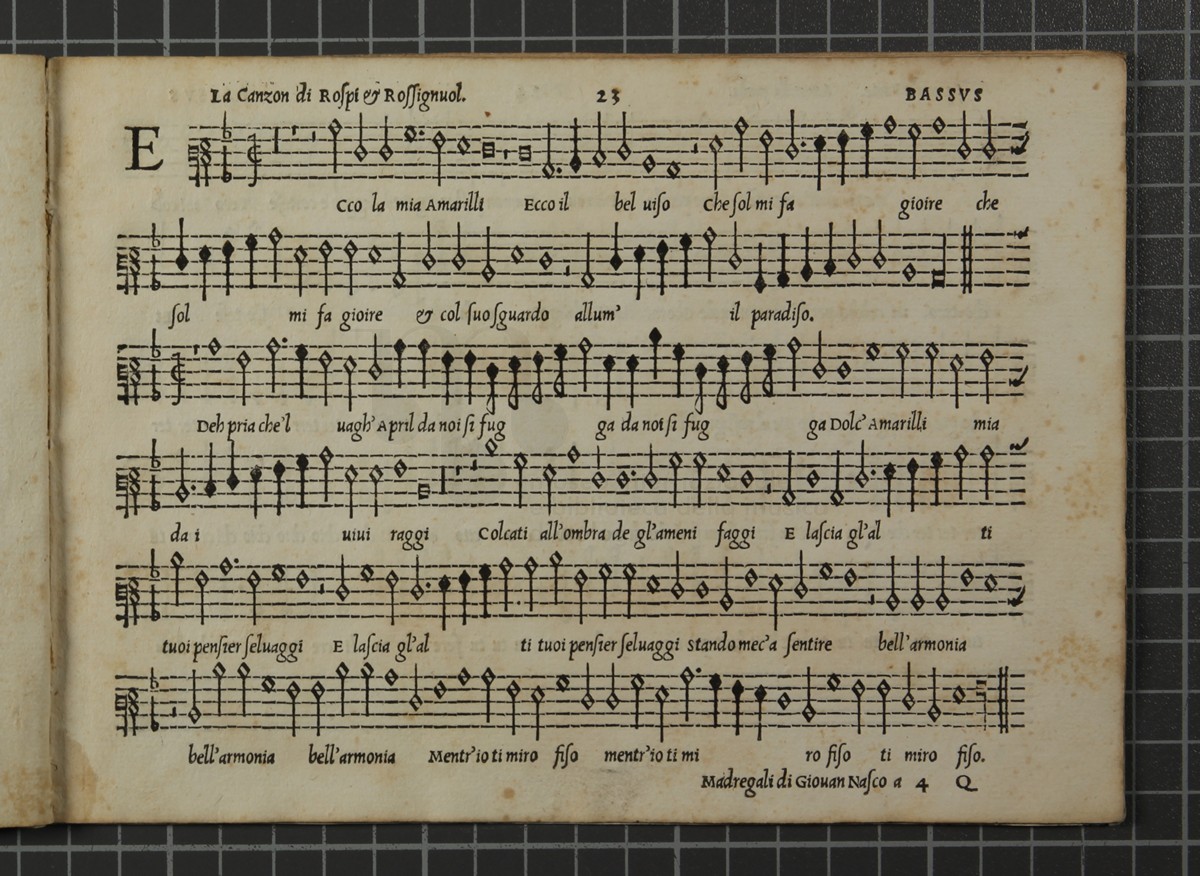 La Canzon di Roſpi & Roſſignuol. 23 BASSVS
E Cco la mia Amarilli Ecco il bel uiſo Che ſol mi fa gioire che
ſol mi fa gioire & col ſuo ſguardo allum' il paradiſo.
Deh pria che'l uagh' April da noi ſi fug ga da noi ſi fug ga Dolc' Amarilli mia
da i uiui raggi Colcati all'ombra de gl'ameni faggi E laſcia gl'al ti
tuoi penſier ſeluaggi E laſcia gl'al ti tuoi penſier ſeluaggi Stando mec'a ſentire bell'armonia
bell'armonia bell'armonia Mentr'io ti miro fiſo mentr'io ti mi ro fiſo ti miro fiſo.
Madregali di Giouan Naſco a 4 Q